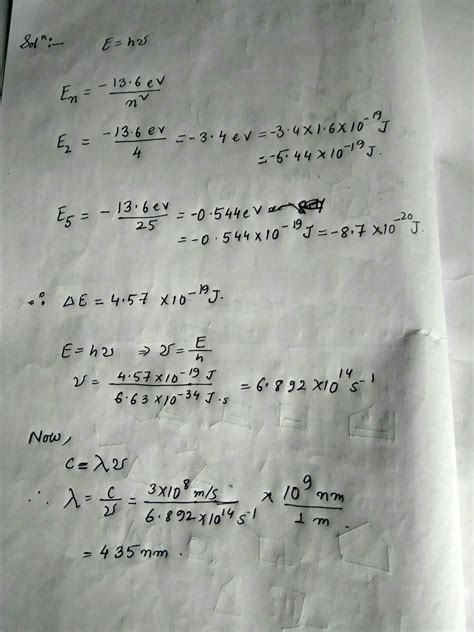 Solⁿ:— E = hν
Eₙ = −13.6 ev / n²
E₂ = −13.6 ev / 4 = −3.4 ev = −3.4 × 1.6 × 10⁻¹⁹ J
= −5.44 × 10⁻¹⁹ J.
E₅ = − 13.6 ev / 25 = −0.544 ev
= −0.544 × 10⁻¹⁹ J = −8.7 × 10⁻²⁰ J.
∴ ΔE = 4.57 × 10⁻¹⁹ J.
E = hν ⇒ ν = E / h
ν = 4.57 × 10⁻¹⁹ J / 6.63 × 10⁻³⁴ J.s = 6.892 × 10¹⁴ s⁻¹
Now,
c = λν
∴ λ = c / ν = 3 × 10⁸ m/s / 6.892 × 10¹⁴ s⁻¹ × 10⁹ nm / 1 m.
= 435 nm.